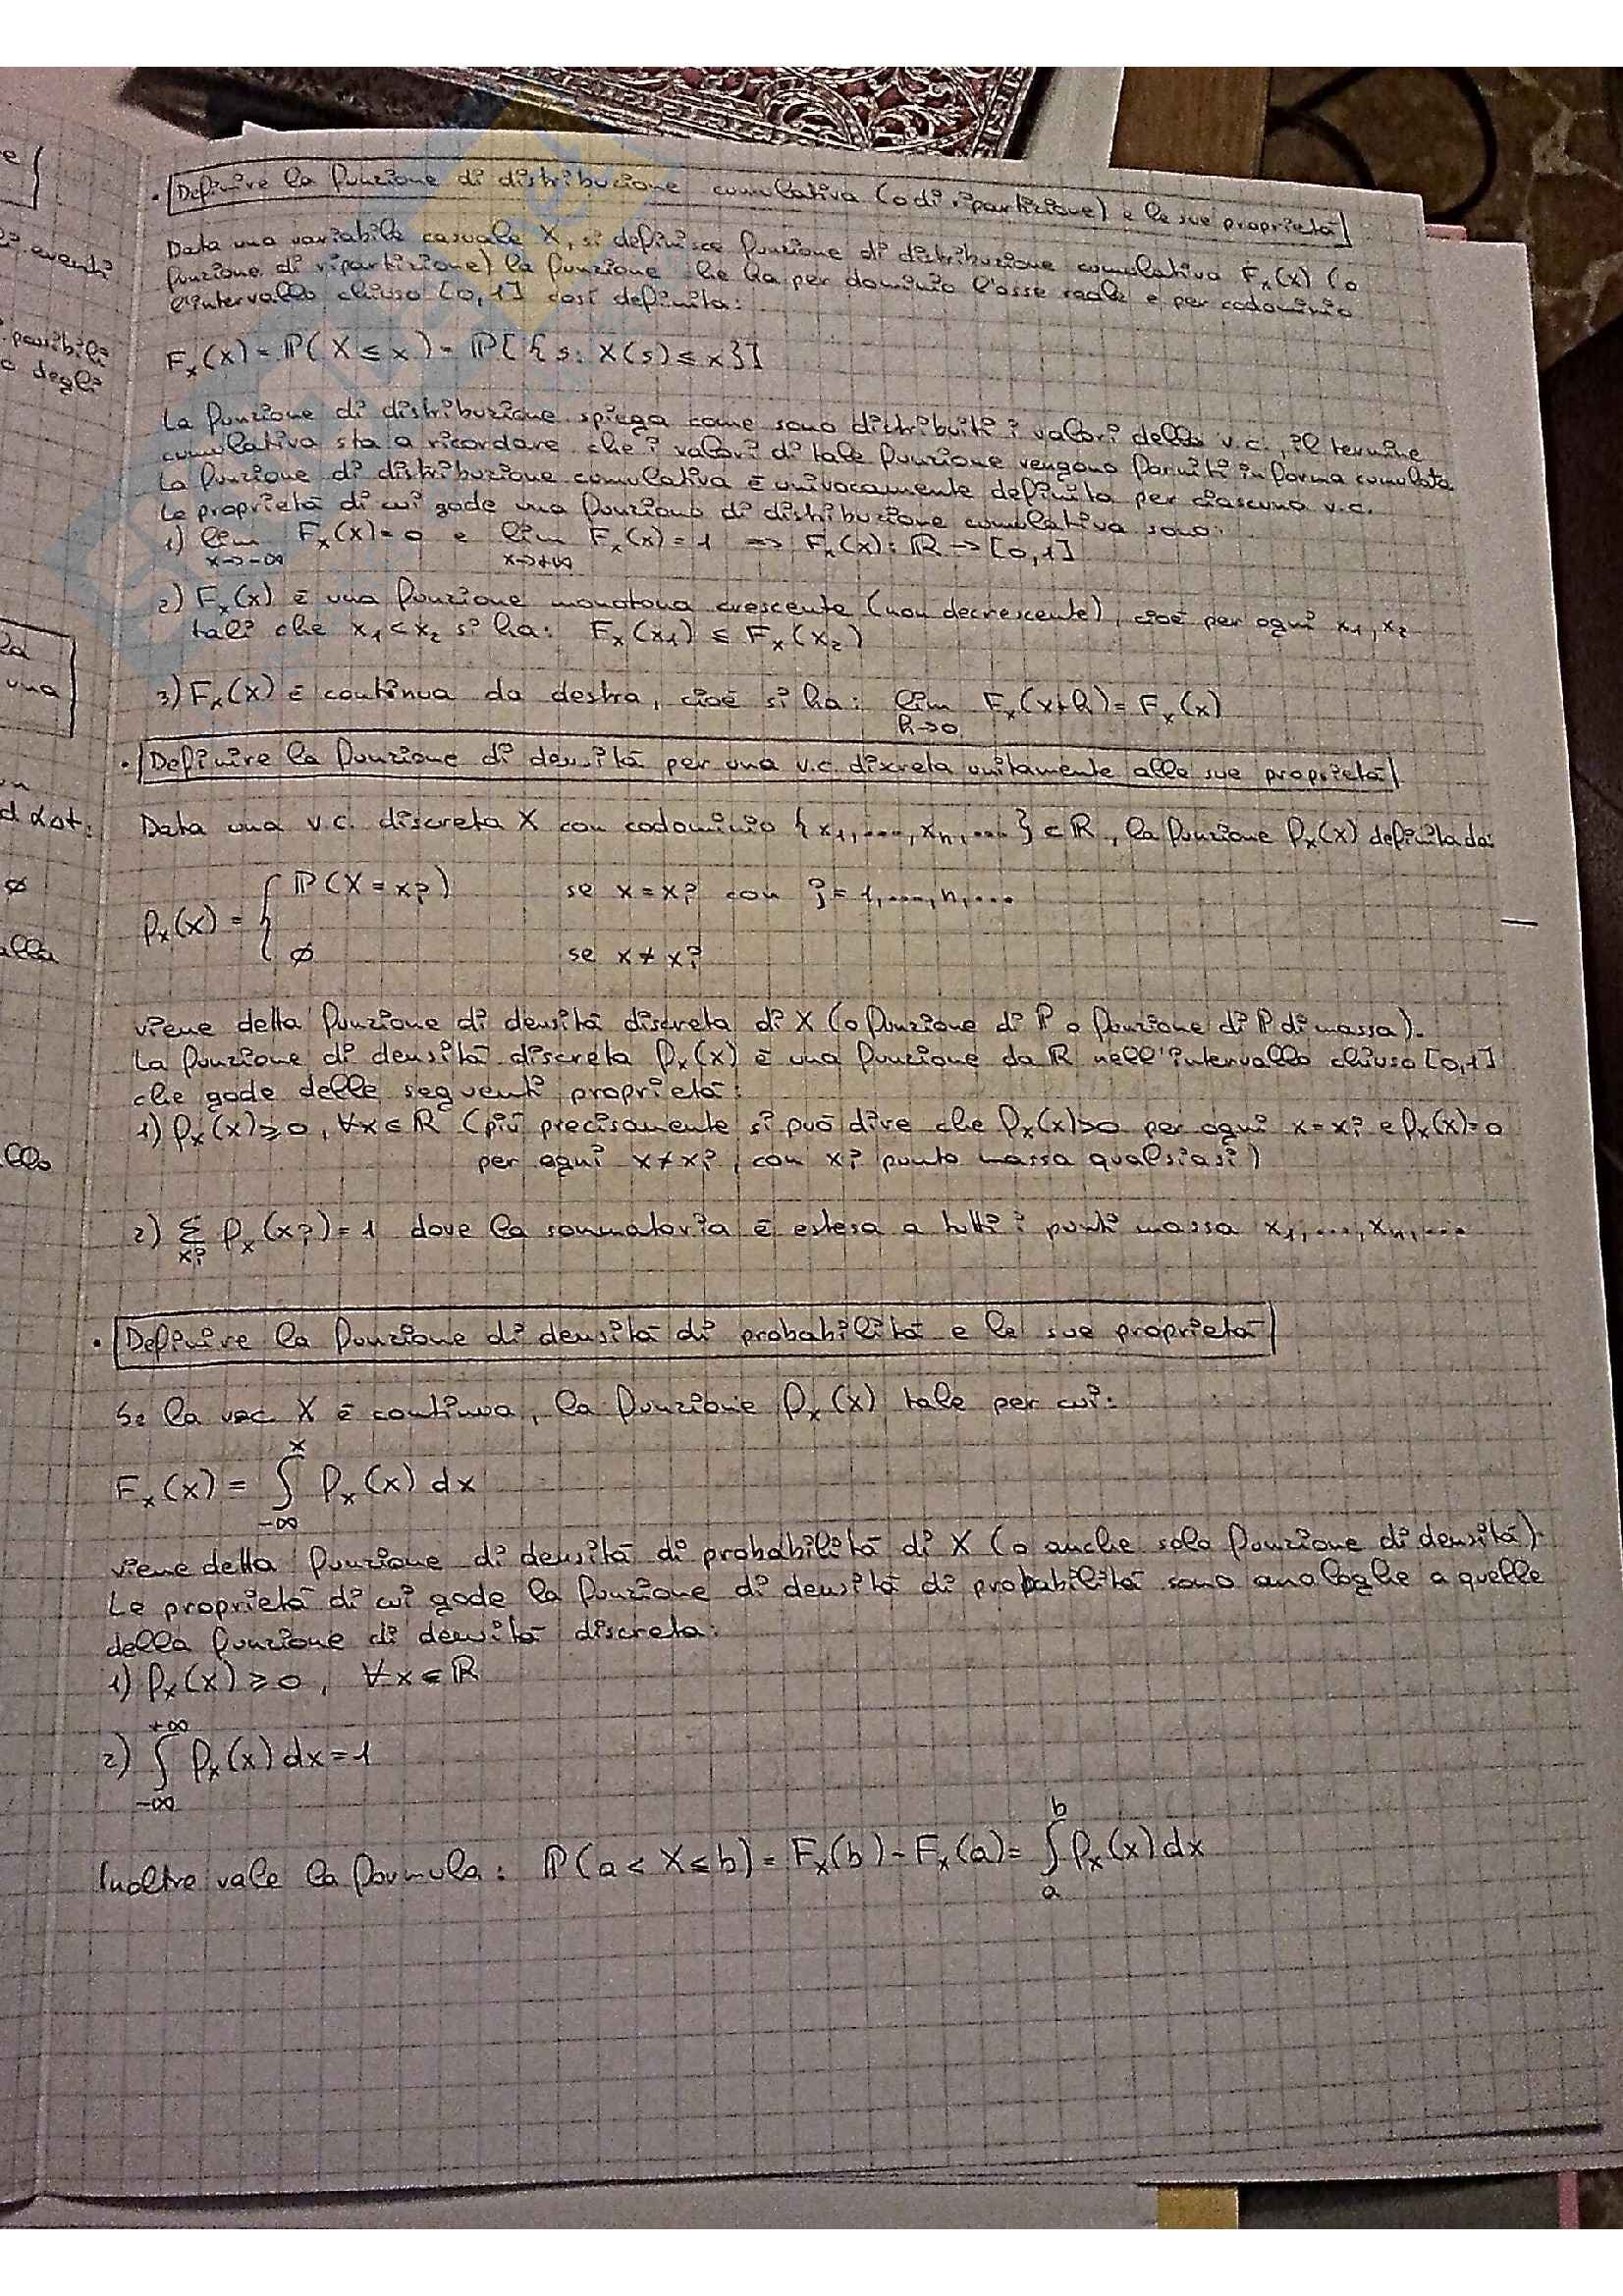 • Definire la funzione di distribuzione cumulativa (o di ripartizione) e le sue proprietà
Data una variabile casuale X, si definisce funzione di distribuzione cumulativa Fx(x) (o
funzione di ripartizione) la funzione che ha per dominio l'asse reale e per codominio
l'intervallo chiuso [0,1] così definita:
Fx(x) = ℙ(X ≤ x) = ℙ[{s: X(s) ≤ x}]
La funzione di distribuzione spiega come sono distribuiti i valori della v.c., il termine
cumulativa sta a ricordare che i valori di tale funzione vengono forniti in forma cumulata.
La funzione di distribuzione cumulativa è univocamente definita per ciascuna v.c.
Le proprietà di cui gode una funzione di distribuzione cumulativa sono:
1) lim Fx(x) = 0 e lim Fx(x) = 1 => Fx(x): ℝ → [0,1]
x→-∞ x→+∞
2) Fx(x) è una funzione monotona crescente (non decrescente), cioè per ogni x1, x2
tali che x1 < x2 si ha: Fx(x1) ≤ Fx(x2)
3) Fx(x) è continua da destra, cioè si ha: lim Fx(x+h) = Fx(x)
h→0
• Definire la funzione di densità per una v.c. discreta unitamente alle sue proprietà
Data una v.c. discreta X con codominio {x1, ...., xn, ...} ⊂ ℝ, la funzione fx(x) definita da:
fx(x) = { ℙ(X = xi) se x = xi con i = 1, ...., n, ....
∅ se x ≠ xi
viene detta funzione di densità discreta di X (o funzione di P o funzione di P di massa).
La funzione di densità discreta fx(x) è una funzione da ℝ nell'intervallo chiuso [0,1]
che gode delle seguenti proprietà:
1) fx(x) ≥ 0, ∀x ∈ ℝ (più precisamente si può dire che fx(x)>0 per ogni x = xi e fx(x)=0
per ogni x ≠ xi, con xi punto massa qualsiasi)
2) Σ fx(xi) = 1 dove la sommatoria è estesa a tutti i punti massa x1, ..., xn, ...
xi
• Definire la funzione di densità di probabilità e le sue proprietà
Se la X è continua, la funzione fx(x) tale per cui:
x
Fx(x) = ∫ fx(x) dx
-∞
viene detta funzione di densità di probabilità di X (o anche solo funzione di densità).
Le proprietà di cui gode la funzione di densità di probabilità sono analoghe a quelle
della funzione di densità discreta:
1) fx(x) ≥ 0, ∀x ∈ ℝ
+∞
2) ∫ fx(x) dx = 1
-∞
b
Inoltre vale la formula: ℙ(a < X ≤ b) = Fx(b) - Fx(a) = ∫ fx(x) dx
a
eventi
possibili
degli
una
alla